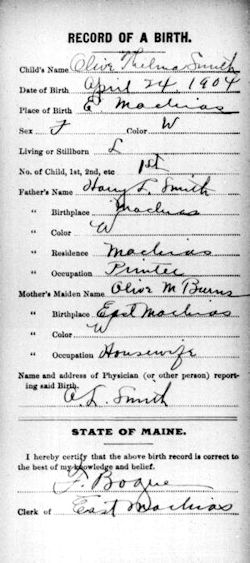 RECORD OF A BIRTH.
Child's Name Olive Thelma Smith
Date of Birth April 24, 1904
Place of Birth E Machias
Sex F Color W
Living or Stillborn L
No. of Child, 1st, 2nd, etc 1st
Father's Name Harry L. Smith
" Birthplace Machias
" Color W
" Residence Machias
" Occupation Printer
Mother's Maiden Name Olive M Burns
" Birthplace East Machias
" Color W
" Occupation Housewife
Name and address of Physician (or other person) report-
ing said Birth.
O. L. Smith
STATE OF MAINE.
I hereby certify that the above birth record is correct to
the best of my knowledge and belief.
F. Bogue
Clerk of East Machias